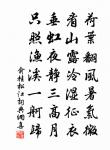 荷葉翻風暑氣微
看山露冷溼征衣
垂虹夜靜三高月
只照漁溪一舸歸
俞桂松江詞典網